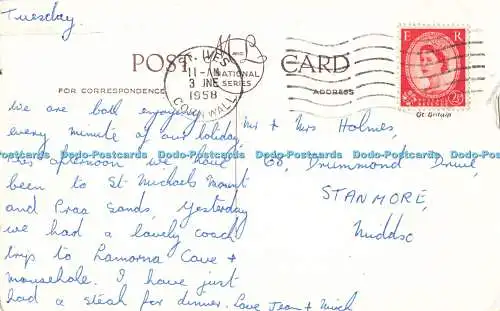 Tuesday
POST CARD
M-L
NATIONAL
SERIES
ST. IVES
11-AM
3 JNE
1958
CORNWALL
E R
POSTAGE REVENUE
2½D
Gt Britain
FOR CORRESPONDENCE
ADDRESS
We are both enjoying
every minute of our holiday,
this afternoon we have
been to St Michaels Mount
and Praa Sands, Yesterday
we had a lovely coach
trip to Lamorna Cove +
mousehole. I have just
had a steak for dinner. Love Jean + Mick
Mr + Mrs Holmes,
68, Drummond Drive
STANMORE,
Middsc
Dodo-Postcards Dodo-Postcards Dodo-Postcards Dodo-Postcards Dodo-Postcards Dodo-Postcards